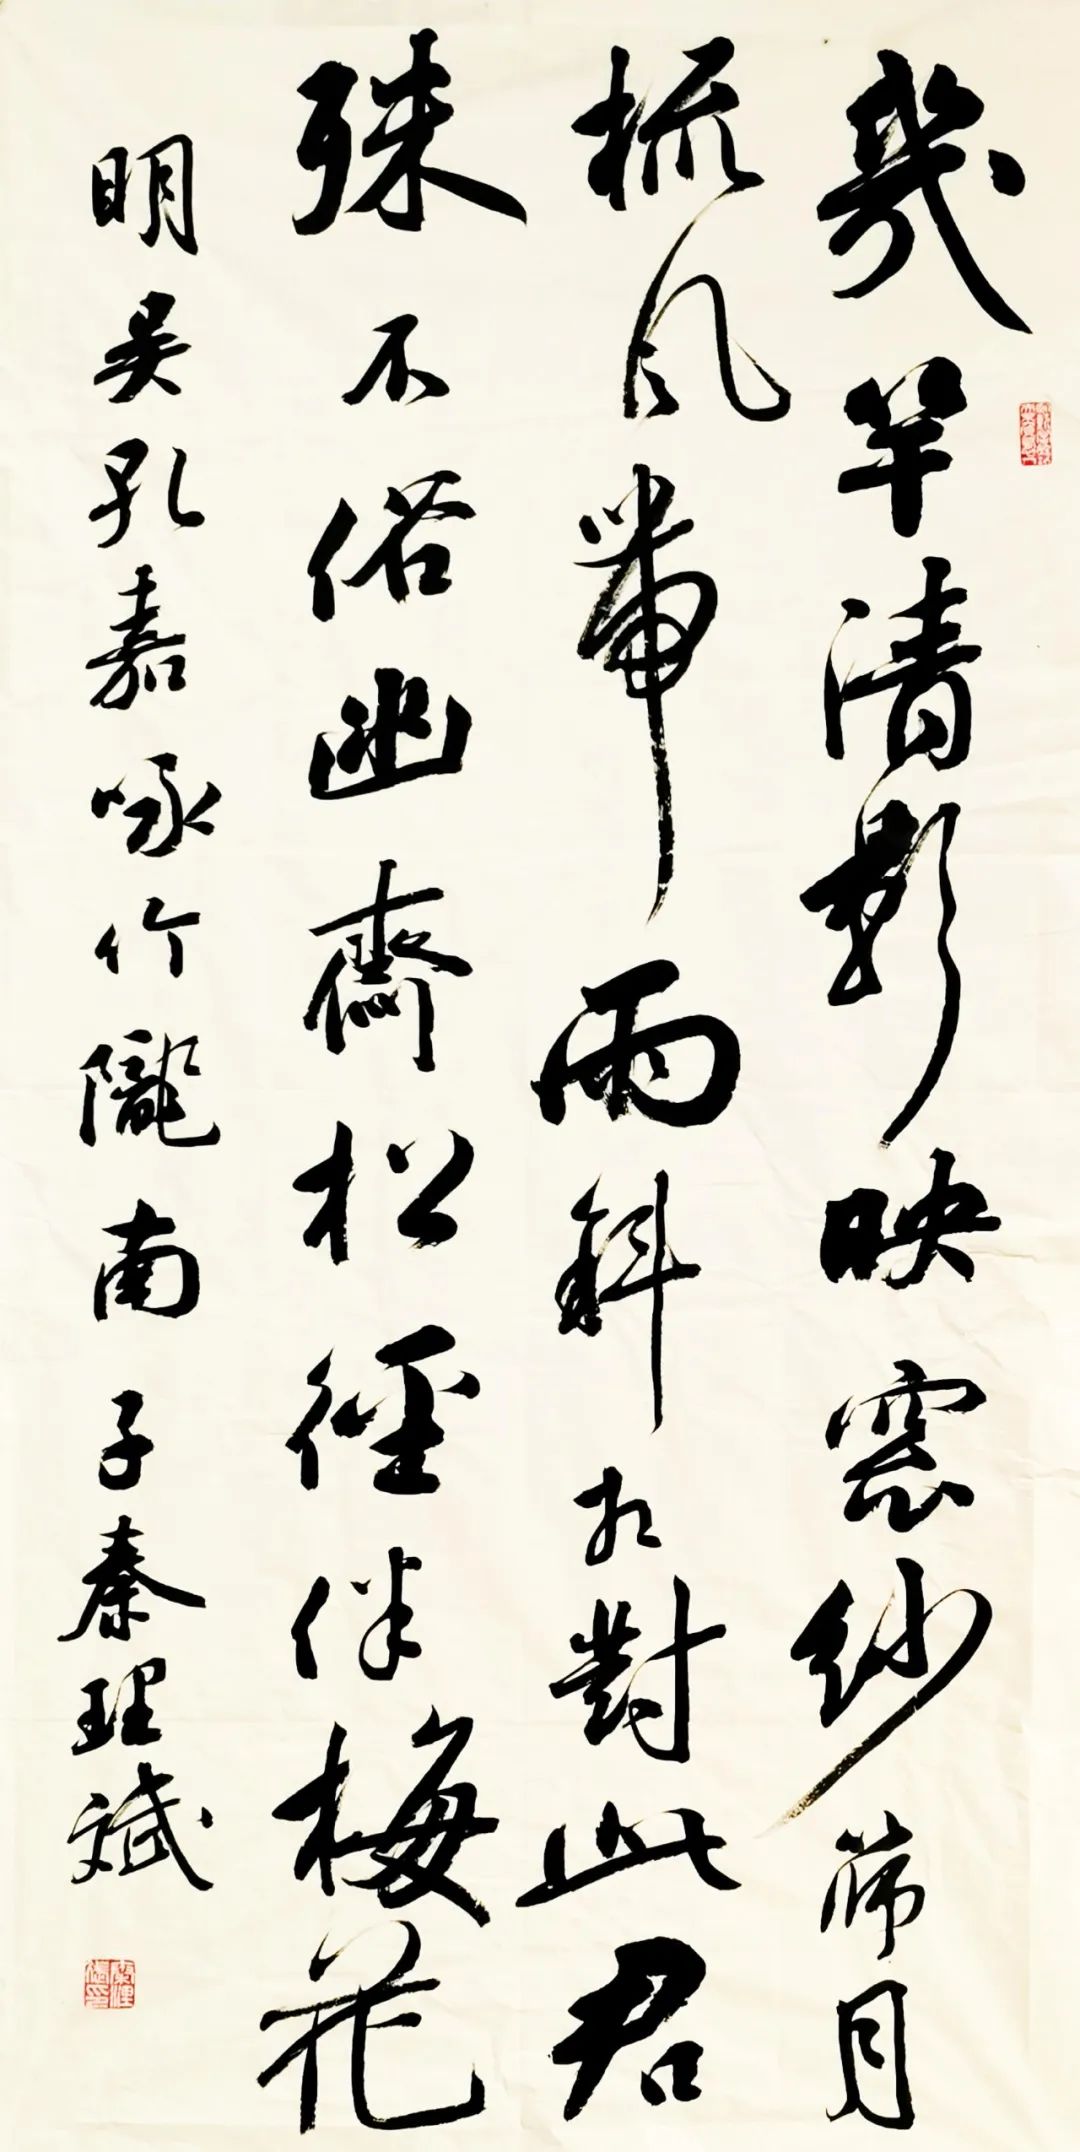 幾竿清影映窓紗筛月
梳風帶雨斜相對此君
殊不俗幽齋松徑伴梅花
明吴孔嘉咏竹隴南子秦理斌